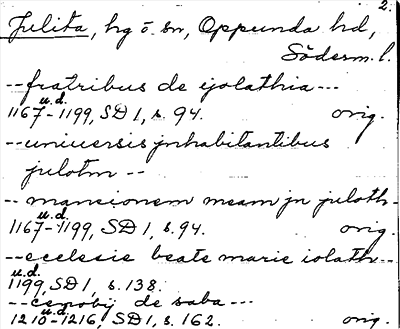 2.
Julita, hg o. sn, Oppunda hd,
Söderm. l.
-- fratribus de ijolathia ---
u.d.
1167-1199, SD 1, s. 94. orig.
-- uniuersis jnhabitantibus
julotm --
-- mansionem meam jn juloth-
u.d.
1167-1199, SD 1, s. 94. orig.
-- ecclesie beate marie iolath---
u.d.
1199, SD 1, s. 138.
-- cenobij de saba ---
u.d.
1210-1216, SD 1, s. 162. orig.